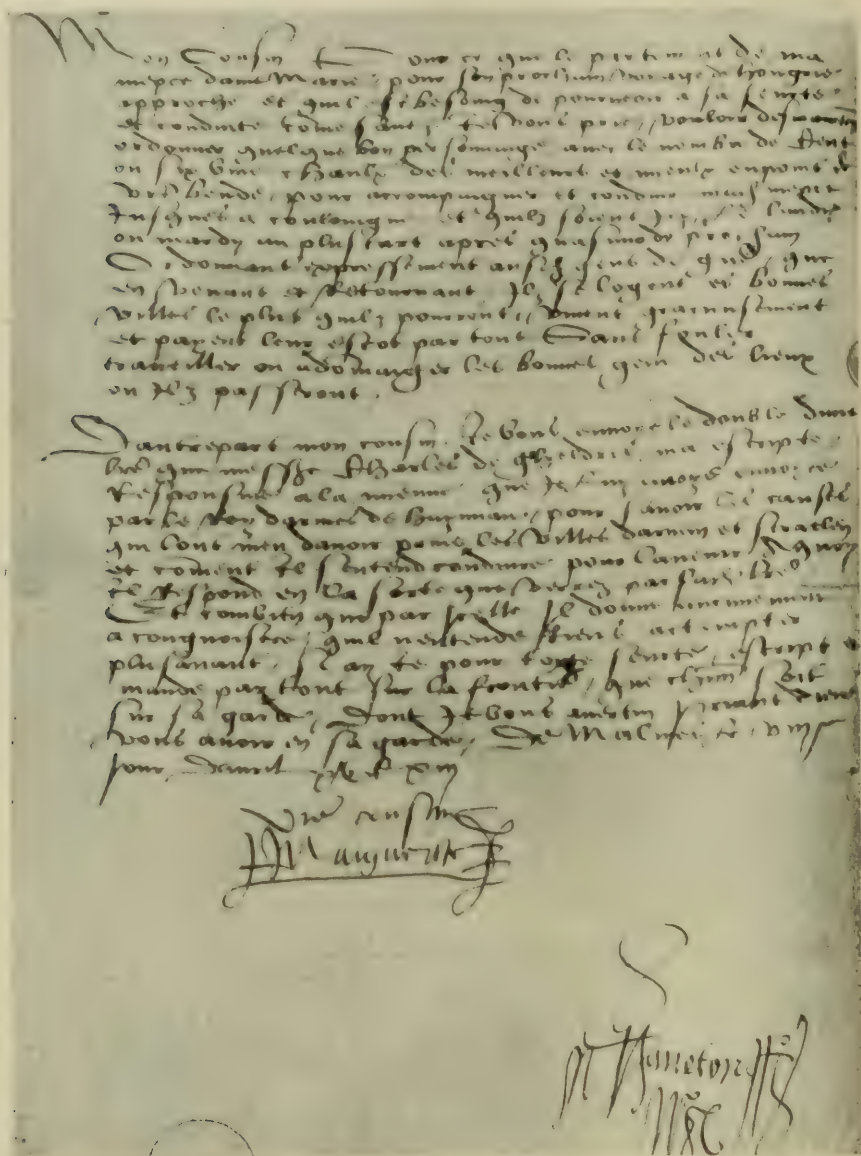 Mon Cousin Pour ce que le partement de ma
niepce dame Marie, pour son prochain voiaige de hongrie
approche et quil est besoing de pourveoir a sa seurte
et conduite Je vous prie, vouloir
ordonner quelque bon personnaige avec le nombre de
ou six vins chevaulx des meilleurs et mieulx enpoint de
vre bende, pour accompaigner et conduire madite niepce
Jusques a couloingne et quilz soient lundi
ou mardy au plus tart apres quasimodo prochain
Ordonnant expressement ausd gens de que
en venant et Retournant Ilz se logent es bonnes
villes le plus quilz pourront, vivent gracieusement
et payent leur escot par tout Sans fouler
travailler ou adomaiger les bonnes gens des lieux
ou Ilz passeront.
Dautrepart mon cousin Je vous envoye le double dune
lre que messire Charles de gheldres ma escripte
Responsive a la mienne que Je luy avoye envoyee
par le Roy darmes de, pour savoir les causes
qui lont meu davoir prins les villes darnem et straelen
et coment Il sentend conduire pour lavenir A quoy
Il Respond en la sorte que verrez par sad lre
Et combien que par Icelle Il donne aucunement
a congnoistre, quil nentende Riens actempter
plusavant, Si ay Je pour toute seurte, escript et
mande par tout sur la frontiere, que chun soit
sur sa garde, Dont Je vous advertiz priant dieu
vous avoir en sa garde, De Malines le viije
Jour davril xvc xiiij
Vre cousine
Marguerite
Haneton